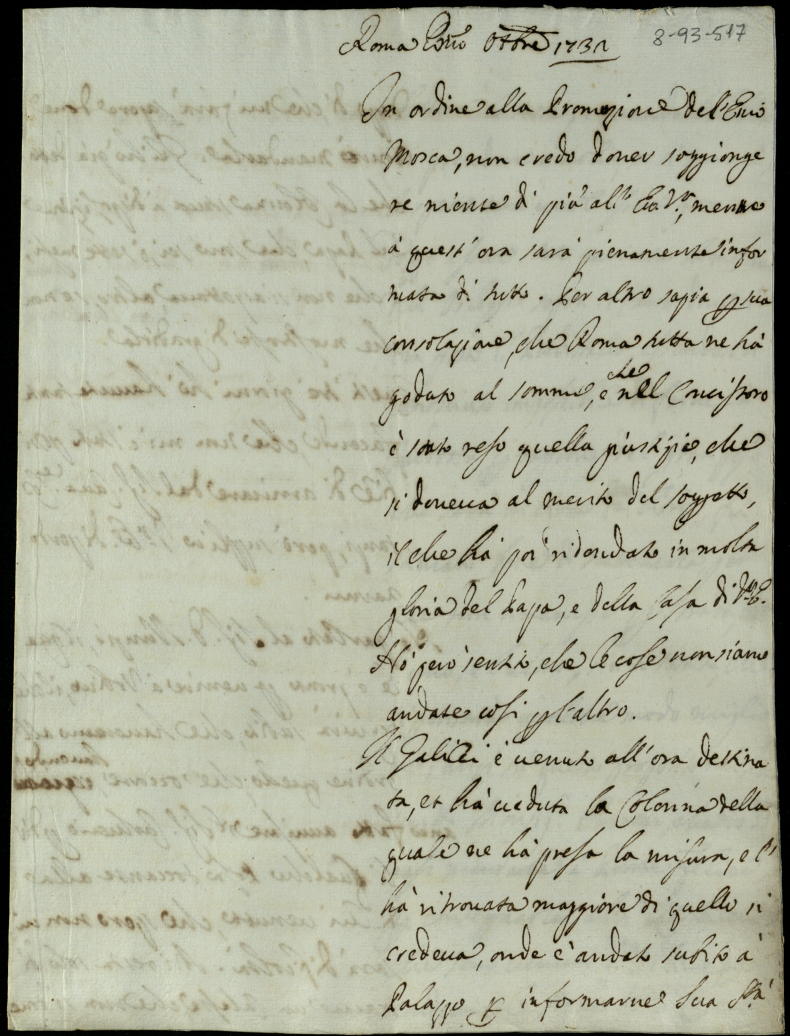 Roma Ottre 1732 8-93-517
In ordine alla Promozione dell'Emo
Mosca, non credo dover soggionge
re niente di più all' Ea. Va., mentre
à quest'ora sarà pienamente infor
mata di tutto. Per altro sapia p sua
consolazione, che Roma tutta ne hà
goduto al sommo, e che nel Concistoro
è stato reso quella giustizia, che
si doveva al merito del soggetto,
il che hà poi ridondato in molta
gloria del Papa, e della Casa di V. E.
Hò però sentito, che le cose non siano
andate così p l'altro.
Il Galilei è venuto all'ora destina
ta, et hà veduta la Colonna della
quale ne hà presa la misura, e l'
hà ritrovata maggiore di quello si
credeva, onde è andato subito à
Palazzo p informarne Sua Stà